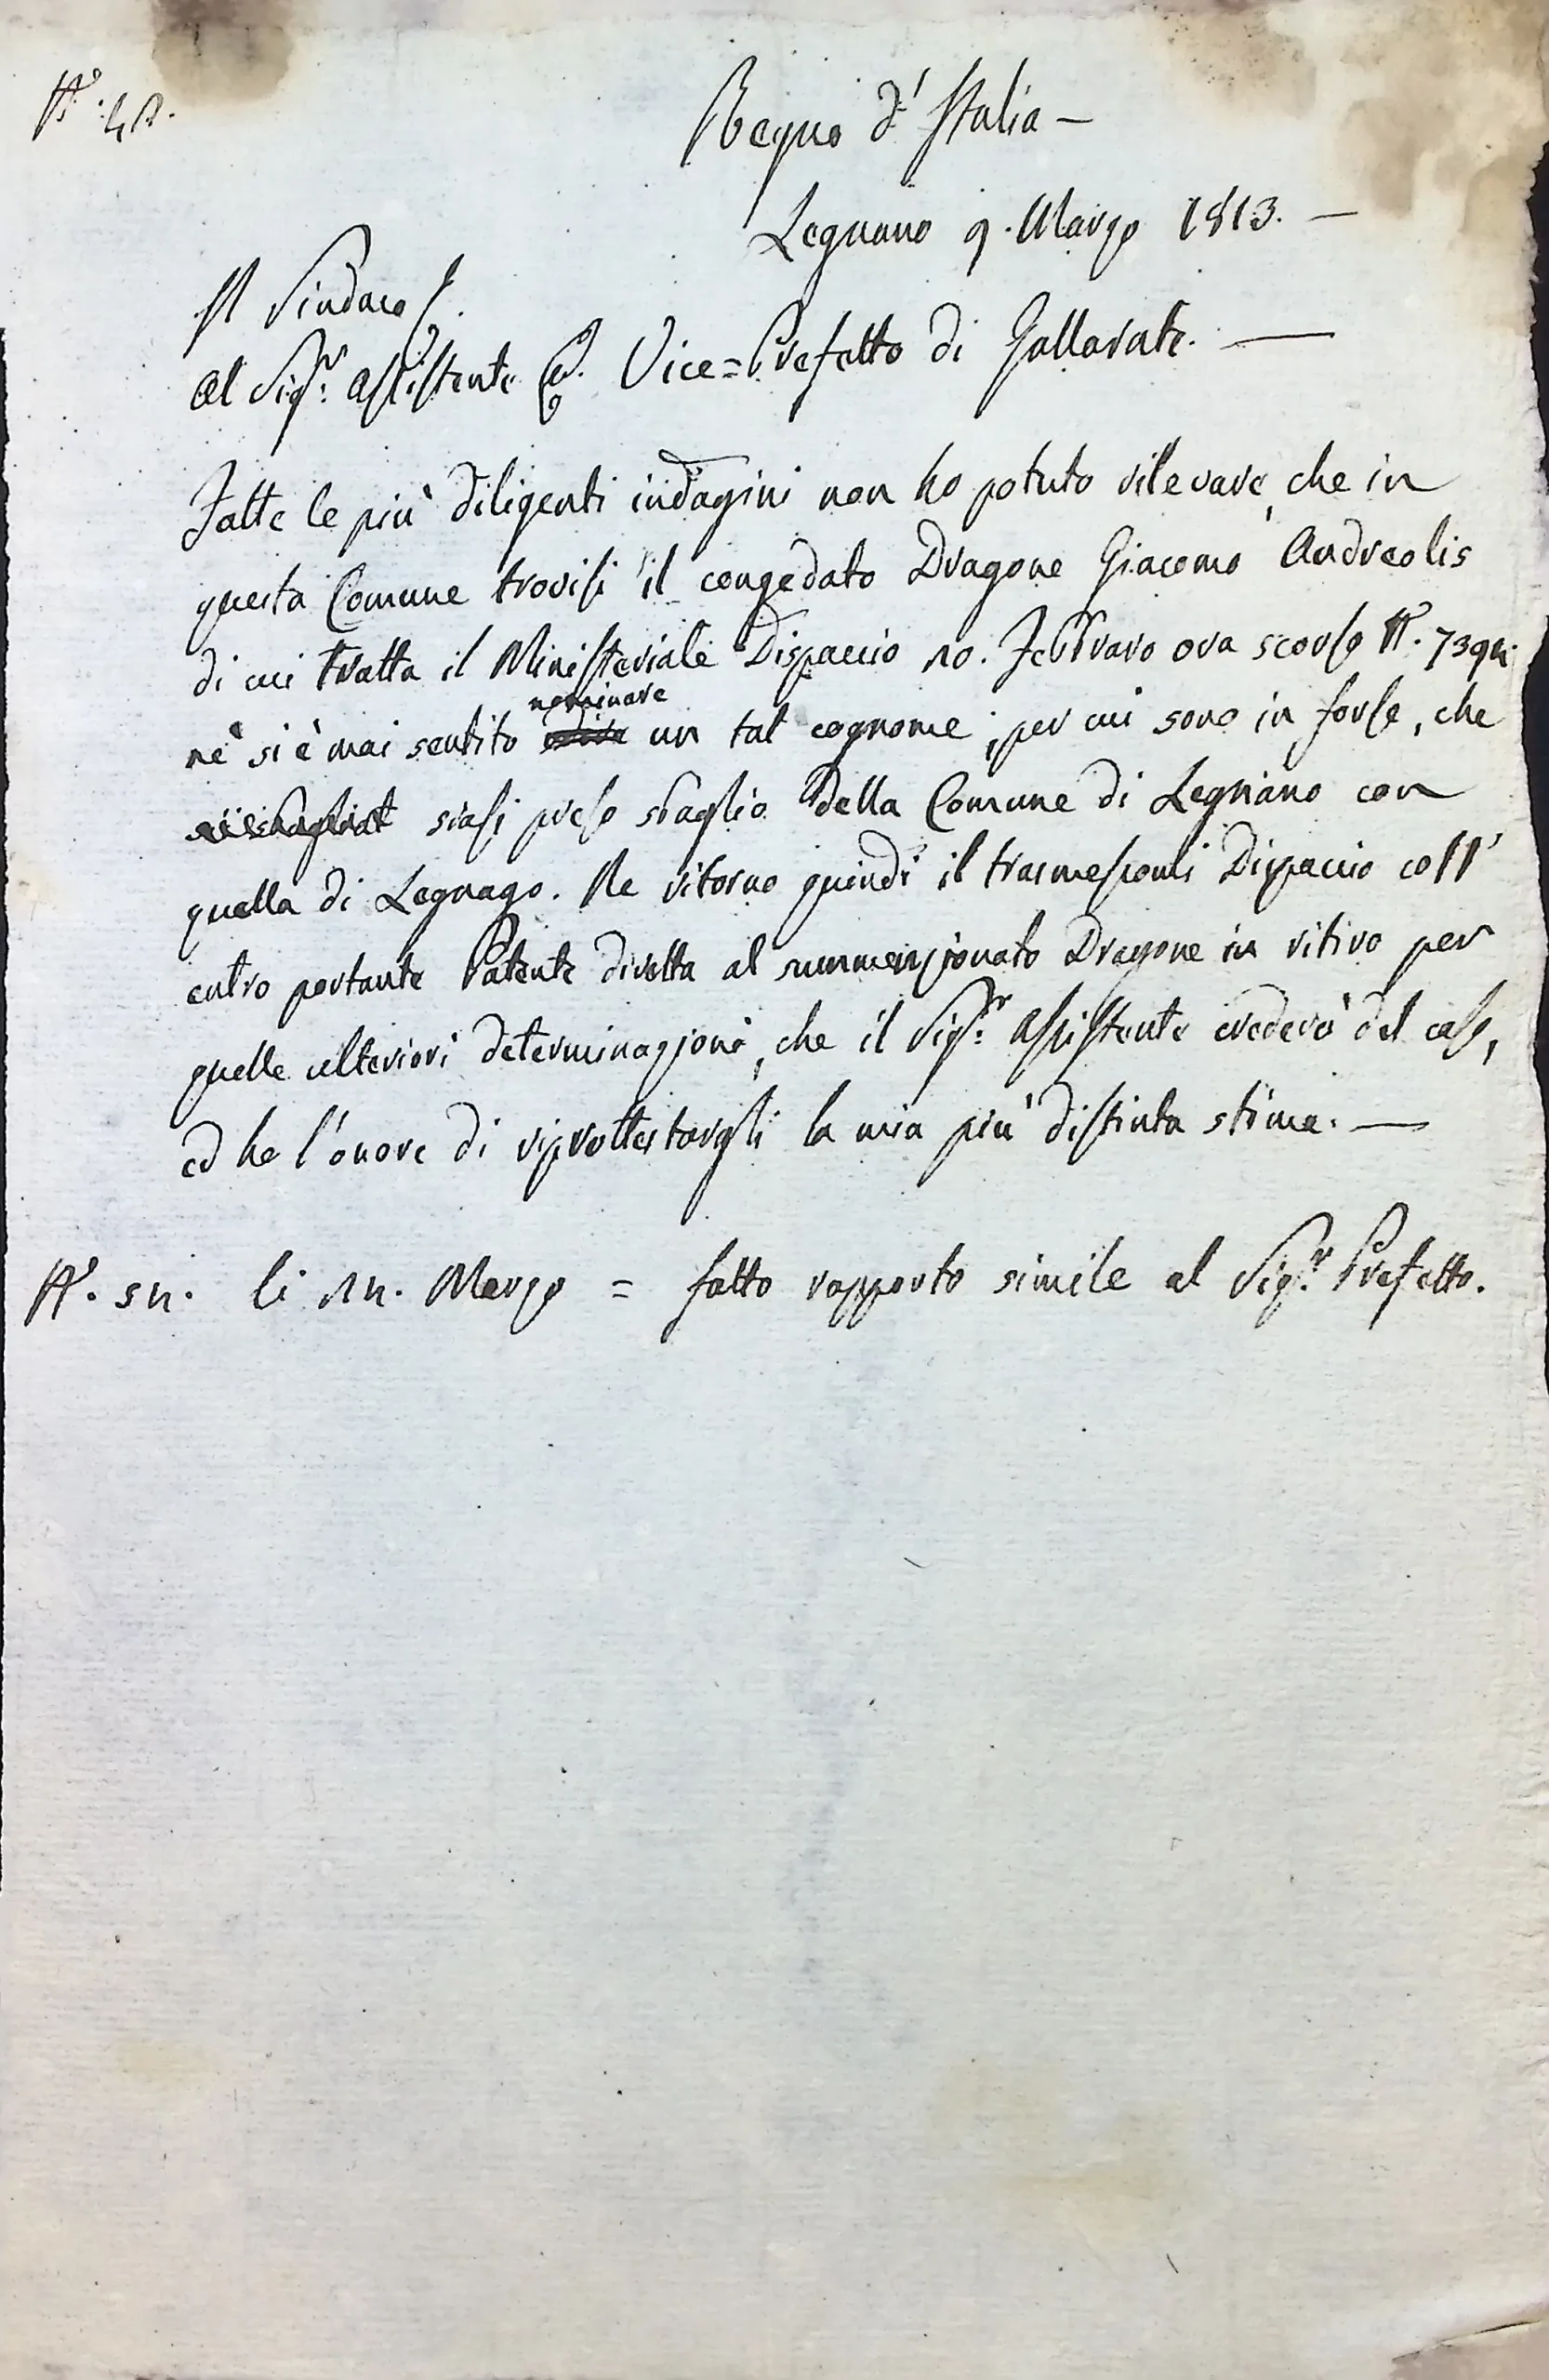 N.º 48.
Regno d'Italia —
Legnano 9. Marzo 1813. —
Il Sindaco
Al Sig.r Assistente P. Vice=Prefetto di Gallarate. —
Fatte le più diligenti indagini non ho potuto rilevare, che in
questa Comune trovisi il congedato Dragone Giacomo Andreolis
di cui tratta il Ministeriale Dispaccio 20. Febbraro ora scorso N.º
nominare
nè si è mai sentito un tal cognome; per cui sono in forse, che
siasi preso sbaglio della Comune di Legnano con
quella di Legnago. Le ritorno quindi il trasmessomi Dispaccio coll'
entro portante Patente diretta al summenzionato Dragone in ritiro per
quelle ulteriori determinazioni, che il Sig.r Assistente crederà del caso,
ed ho l'onore di riprottestargli la mia più distinta stima. —
N.º 52. li 12. Marzo = fatto rapporto simile al Sig.r Prefetto.